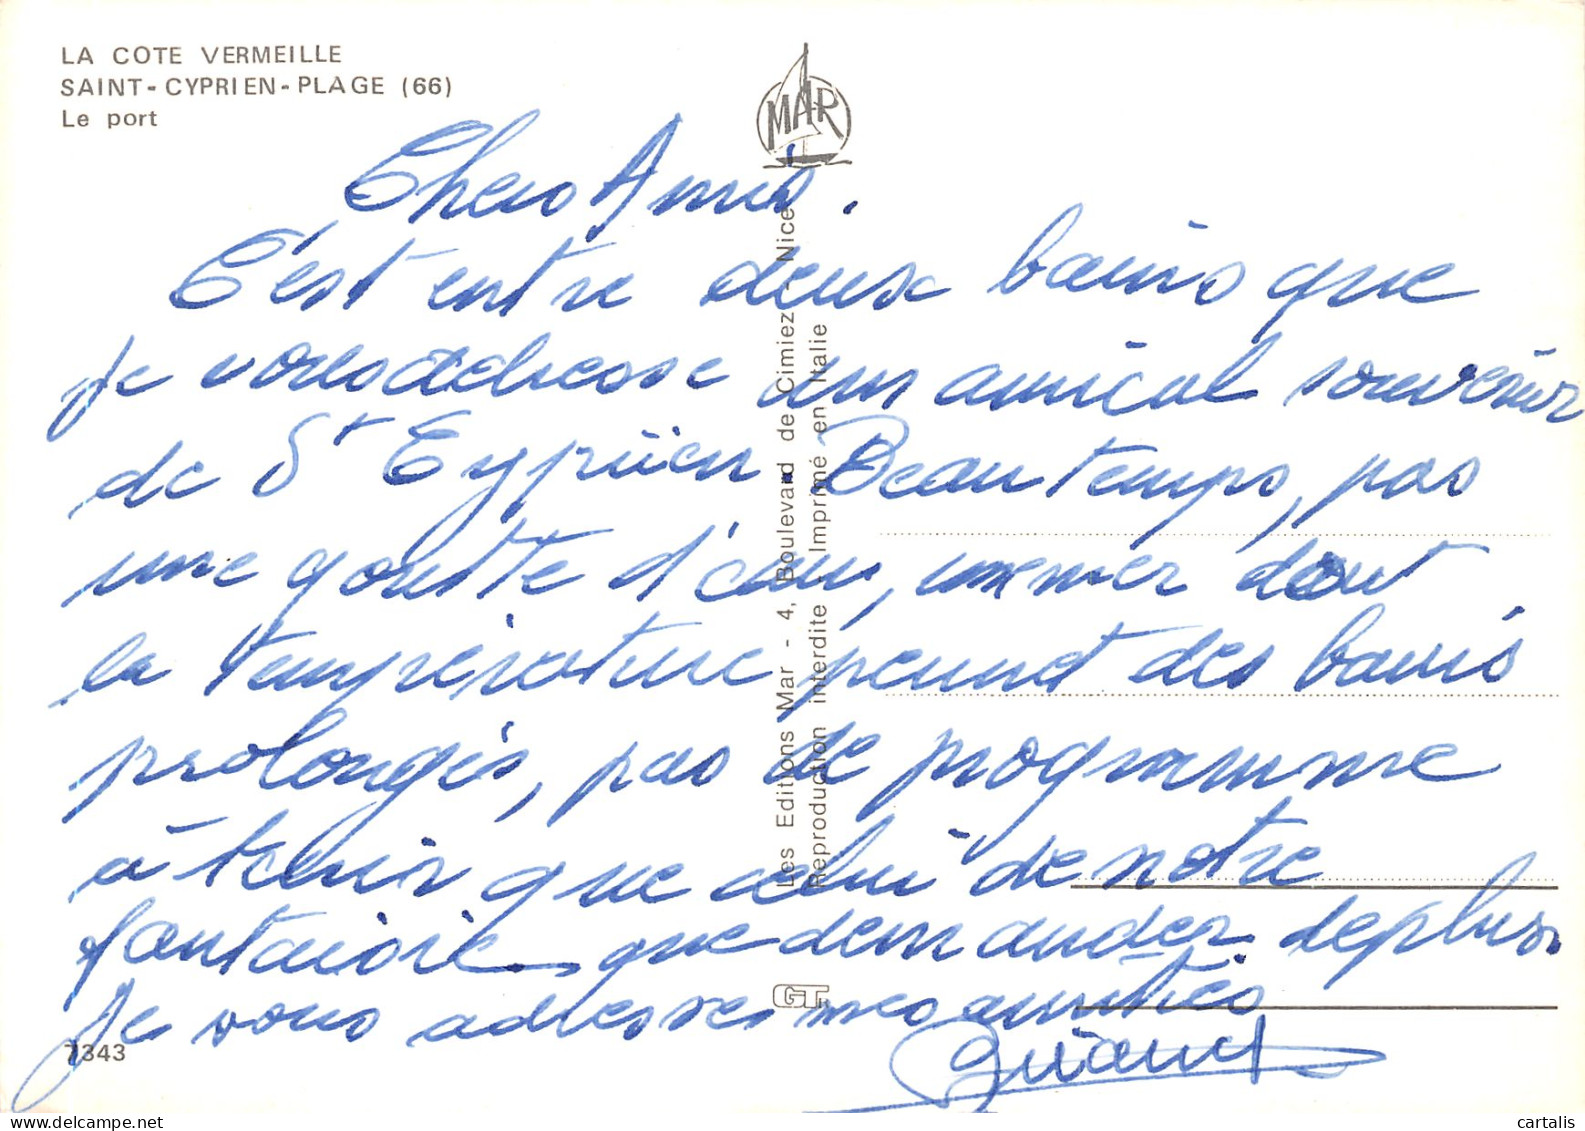 LA COTE VERMEILLE
SAINT-CYPRIEN-PLAGE (66)
Le port
MAR
Chers Amis.
C'est entre deux bains que
je vous adresse un amical souvenir
de St Cyprien. Beau temps, pas
une goutte d'eau, une mer dont
la température permet des bains
prolongés, pas de programme
à tenir que celui de notre
fantaisie, que demander de plus.
Je vous adresse mes amitiés
Les Editions Mar - 4, Boulevard de Cimiez - Nice
Reproduction interdite - Imprimé en Italie
GT
7343
cartalis